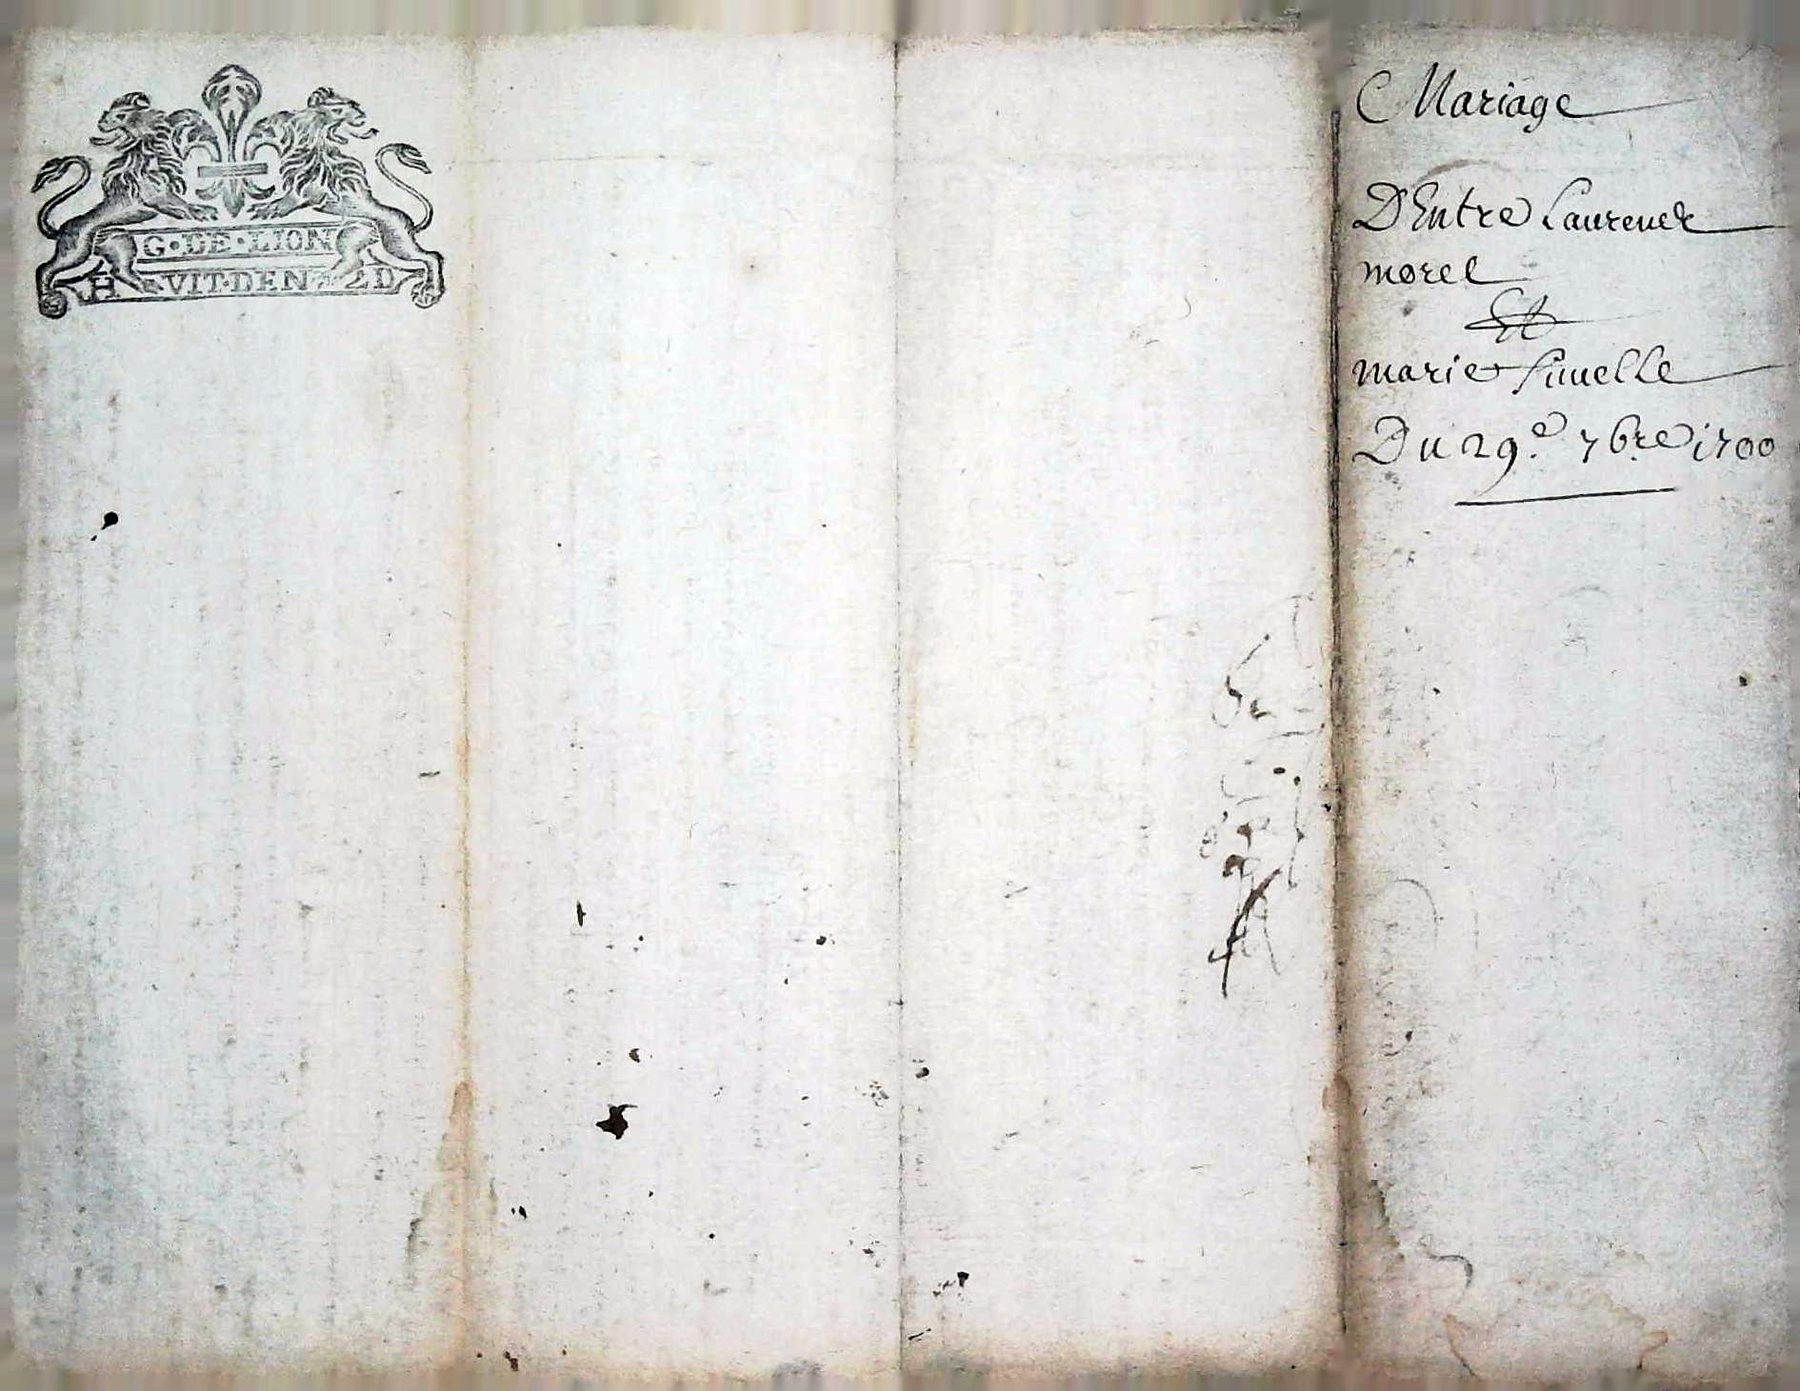 G·DE·LION
HVIT·DEN·2D
Mariage
D'Entre Laurenet
morel
Et
marie Finelle
Du 29.e 7bre 1700